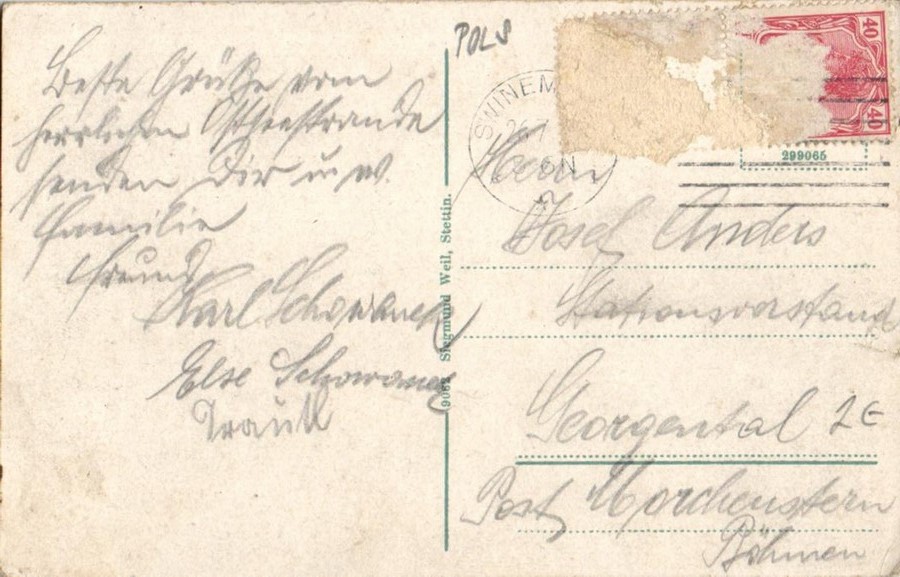 Beste Grüße vom
herrlichen Ostseestrande
senden Dir u. w.
Familie
Freund
Karl Schwaneck
Else Schwaneck
Traudl
9065 Siegmund Weil, Stettin.
POLS
SWINEM
26.7
6N
40
40
299065
Herrn
Josef Anders
Stationsvorstand
Georgental
2E
Post Morchenstern
Böhmen